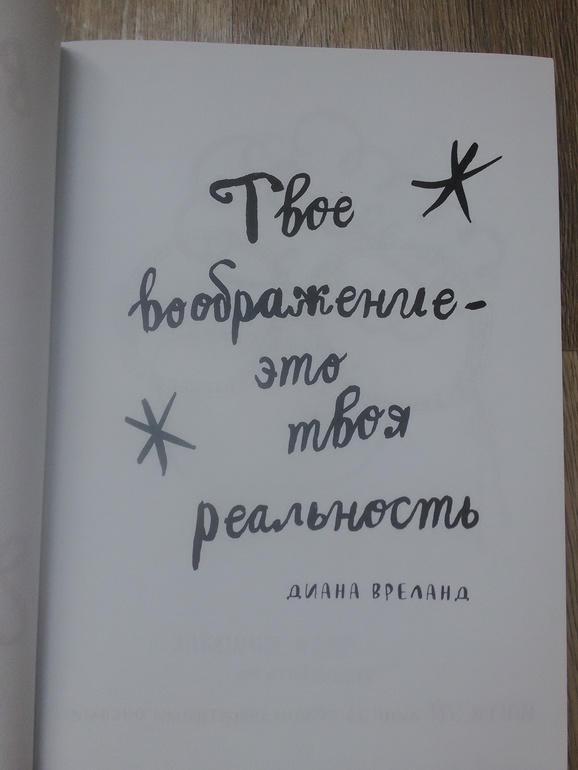 Твое
воображение-
это
твоя
реальность
ДИАНА ВРЕЛАНД